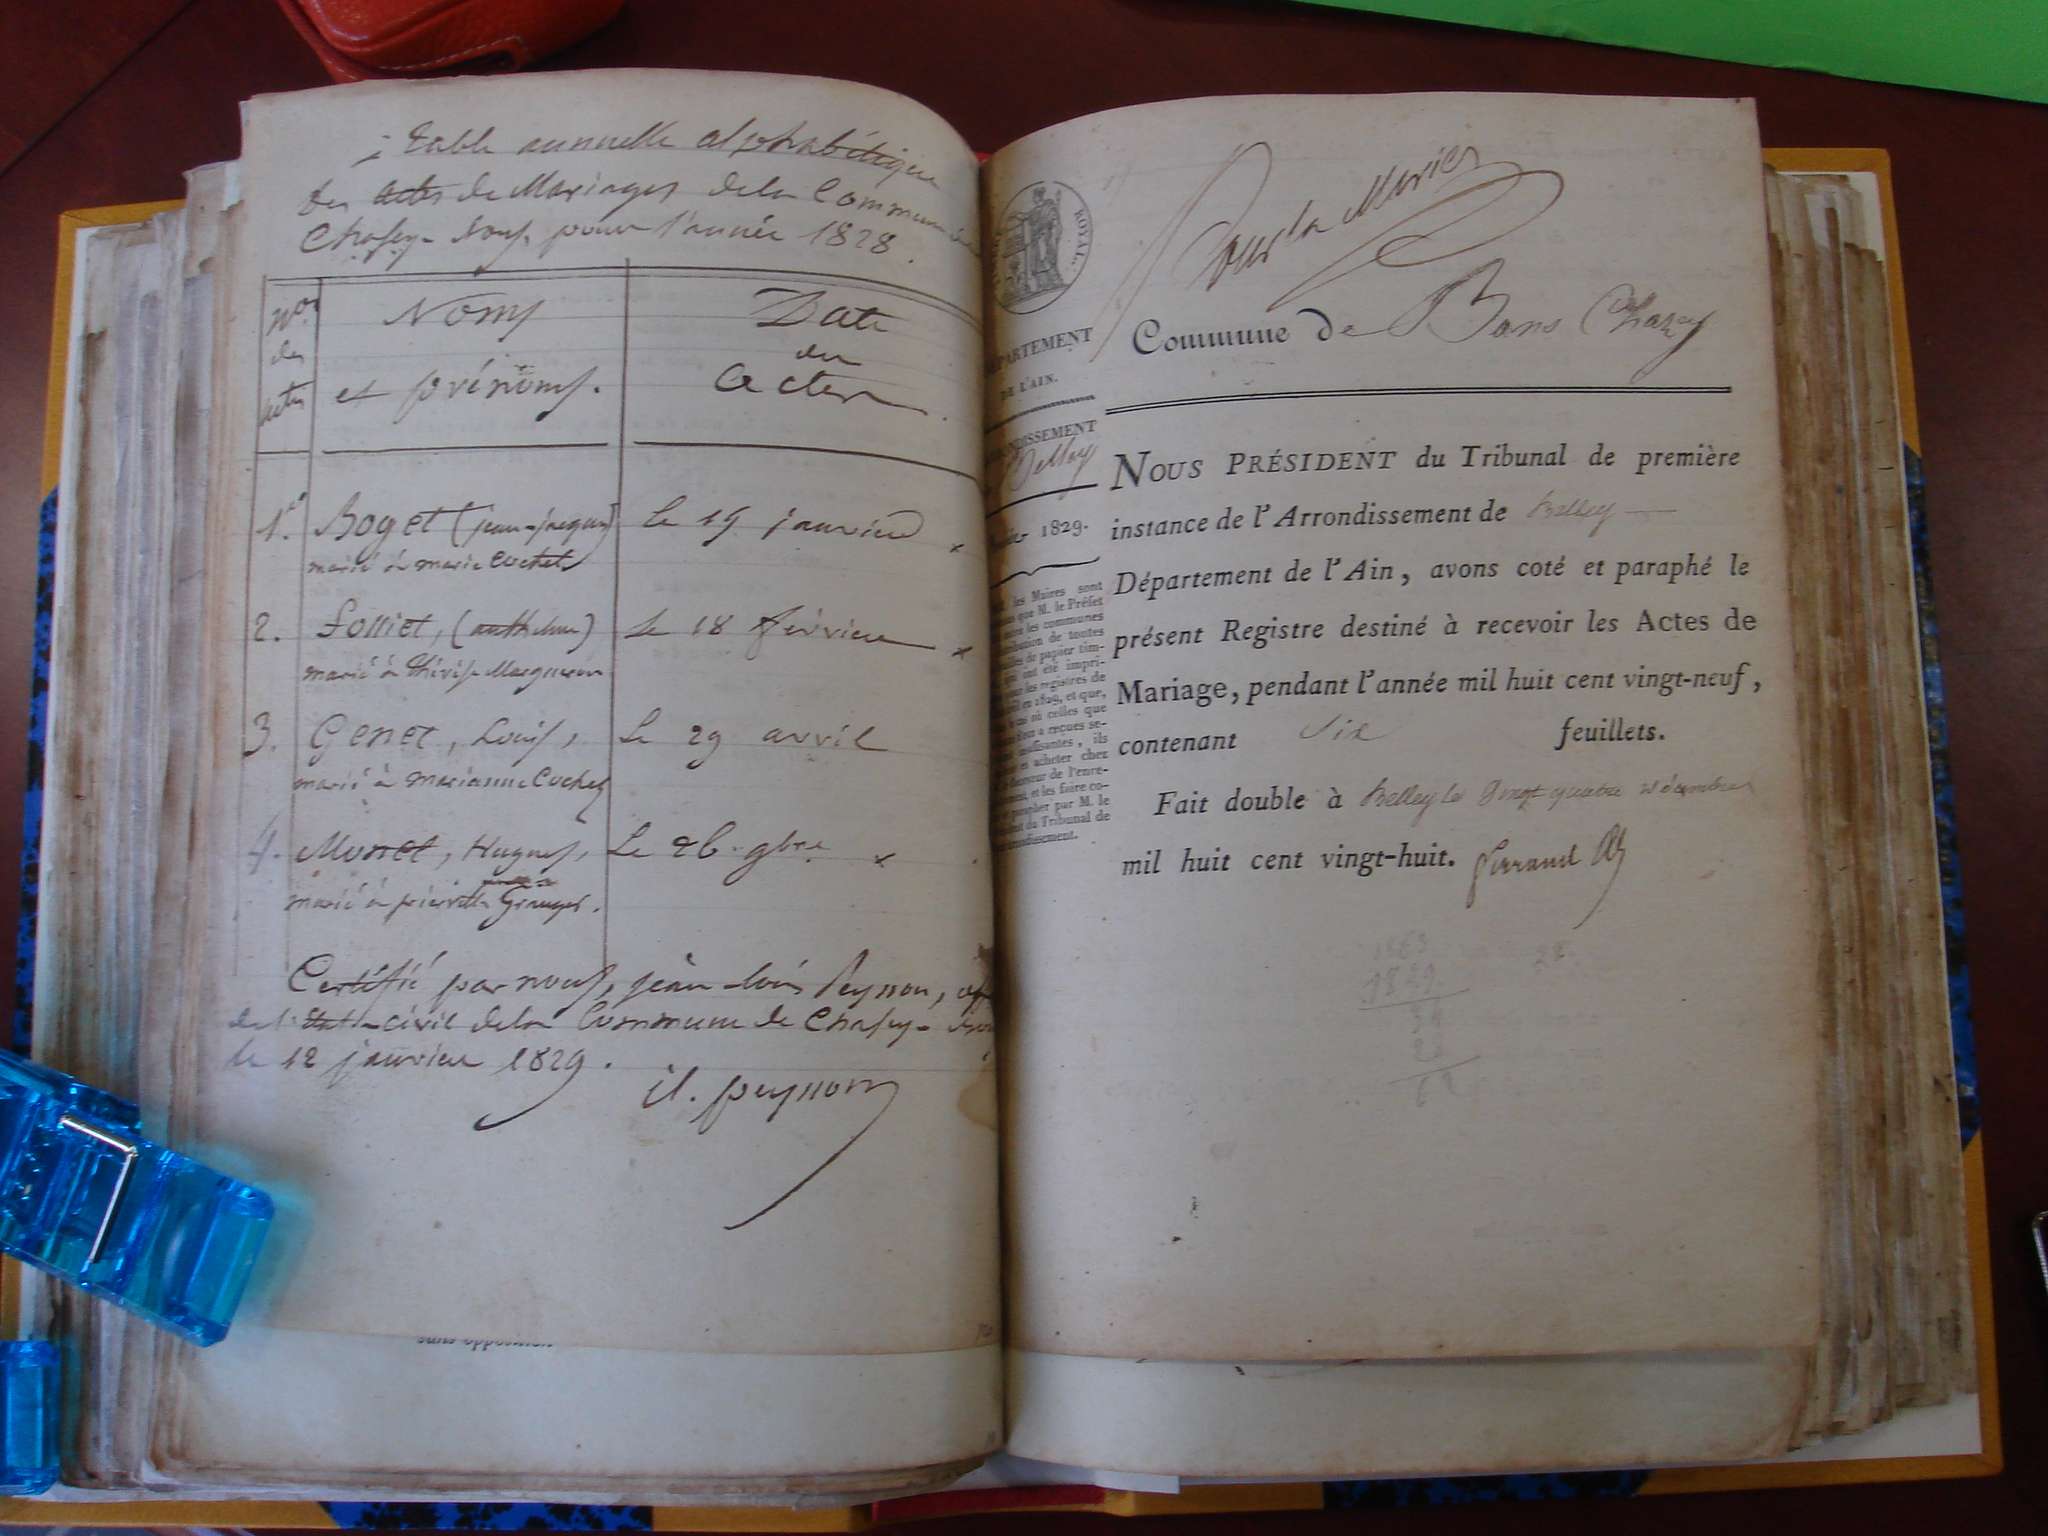 table annuelle alphabétique
des actes de Mariages de la Commune de
Chasey-Bons, pour l'année 1828.
Nos des actes
Noms et prénoms.
Date des actes.
1. Boget (jean-jacques) le 15 janvier
marié à marie Cochet
2. Folliet, (anthelme) le 18 février
marié à thérèse
3. Genet, Louis, Le 29 avril
marié à marianne Cochet
4. Monet, Hugues, Le 26. 9bre
marié à pierrette Granger.
Certifié par nous, jean-louis Peysson, off
de l'état-civil de la Commune de Chasey-Bons
le 12 janvier 1829.
jl. peysson
Pour la Mairie
ROYAL.
Commune de Bons Chazey
DÉPARTEMENT
DE L'AIN.
ARRONDISSEMENT
Belley
1829.
les Maires sont
que M. le Préfet
les communes
tribution de toutes
de papier tim-
ont été impri-
les registres de
en 1829, et que,
cas où celles que
a reçues se-
insuffisantes, ils
acheter chez
de l'enre-
et les faire co-
parapher par M. le
du Tribunal de
NOUS PRÉSIDENT du Tribunal de première
instance de l'Arrondissement de Belley
Département de l'Ain, avons coté et paraphé le
présent Registre destiné à recevoir les Actes de
Mariage, pendant l'année mil huit cent vingt-neuf,
contenant Six feuillets.
Fait double à Belley le vingt quatre décembre
mil huit cent vingt-huit.
1829